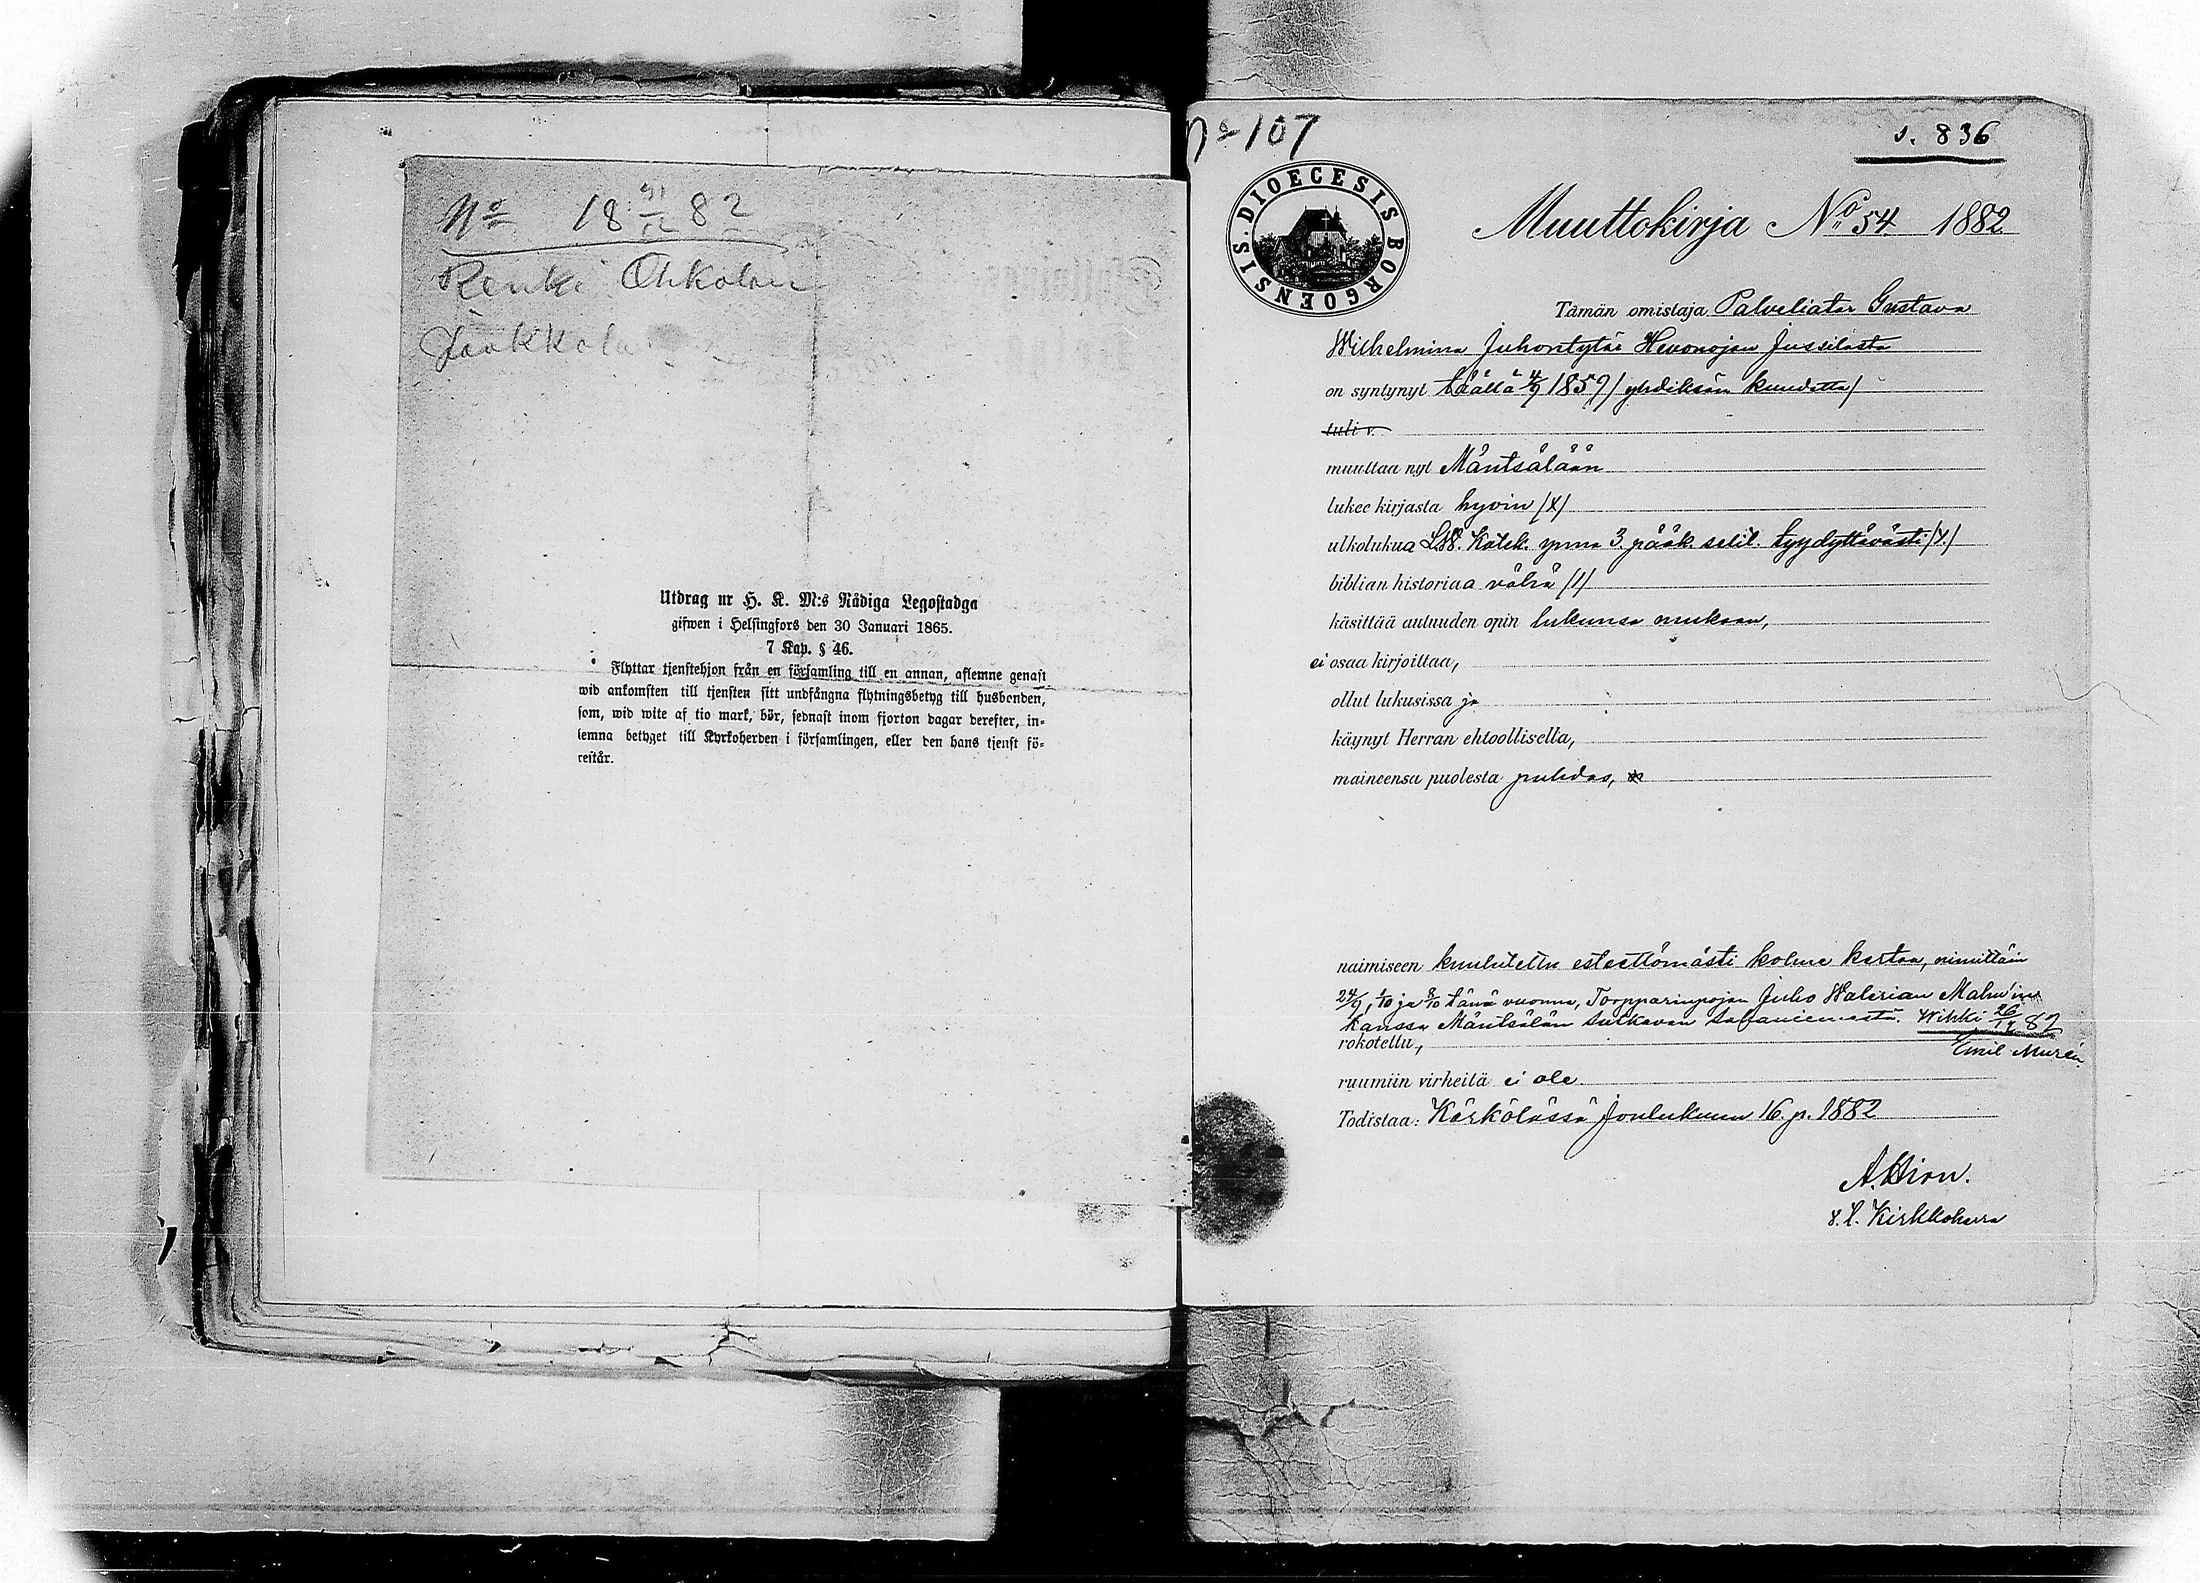 No 18 31/12 82
Renki Ohkolan
Jaakkola
Utdrag ur H. K. M:s Nådiga Legostadga
gifwen i Helsingfors den 30 Januari 1865.
7 Kap. § 46.
Flyttar tjenstehjon från en församling till en annan, aflemne genast
wid ankomsten till tjensten sitt undfångna flytningsbetyg till husbonden,
som, wid wite af tio mark, bör, sednast inom fjorton dagar derefter, in-
lemna betyget till Kyrkoherden i församlingen, eller den hans tjenst fö-
restår.
No 107
s. 836
DIOECESIS BORGOENSIS.
Muuttokirja No 54 1882
Tämän omistaja Palveliatar Gustava
Wilhelmina Juhontytär Hevonojan Jussilasta
on syntynyt täällä 4/9 1859 / yhdeksän kuudetta /
tuli v.
muuttaa nyt Mäntsälään
lukee kirjasta hyvin /x/
ulkolukua Katek. ynnä 3. pääk. selit. tyydyttävästi /x/
biblian historiaa vähä /1/
käsittää autuuden opin lukunsa mukaan,
ei osaa kirjoittaa,
ollut lukusissa ja
käynyt Herran ehtoollisella,
maineensa puolesta puhdas,
naimiseen kuulutettu esteettömästi kolme kertaa, nimittäin
24/9, 1/10 ja 8/10 tänä vuonna, Torpparinpojan Juho Walerian Malw'in
kanssa Mäntsälän Sulkavan Wihki 26/12 82
rokotettu,
Emil Murén
ruumiin virheitä ei ole
Todistaa: Kärkölässä Joulukuun 16. p. 1882
A. Hirn.
v. t. Kirkkoherra